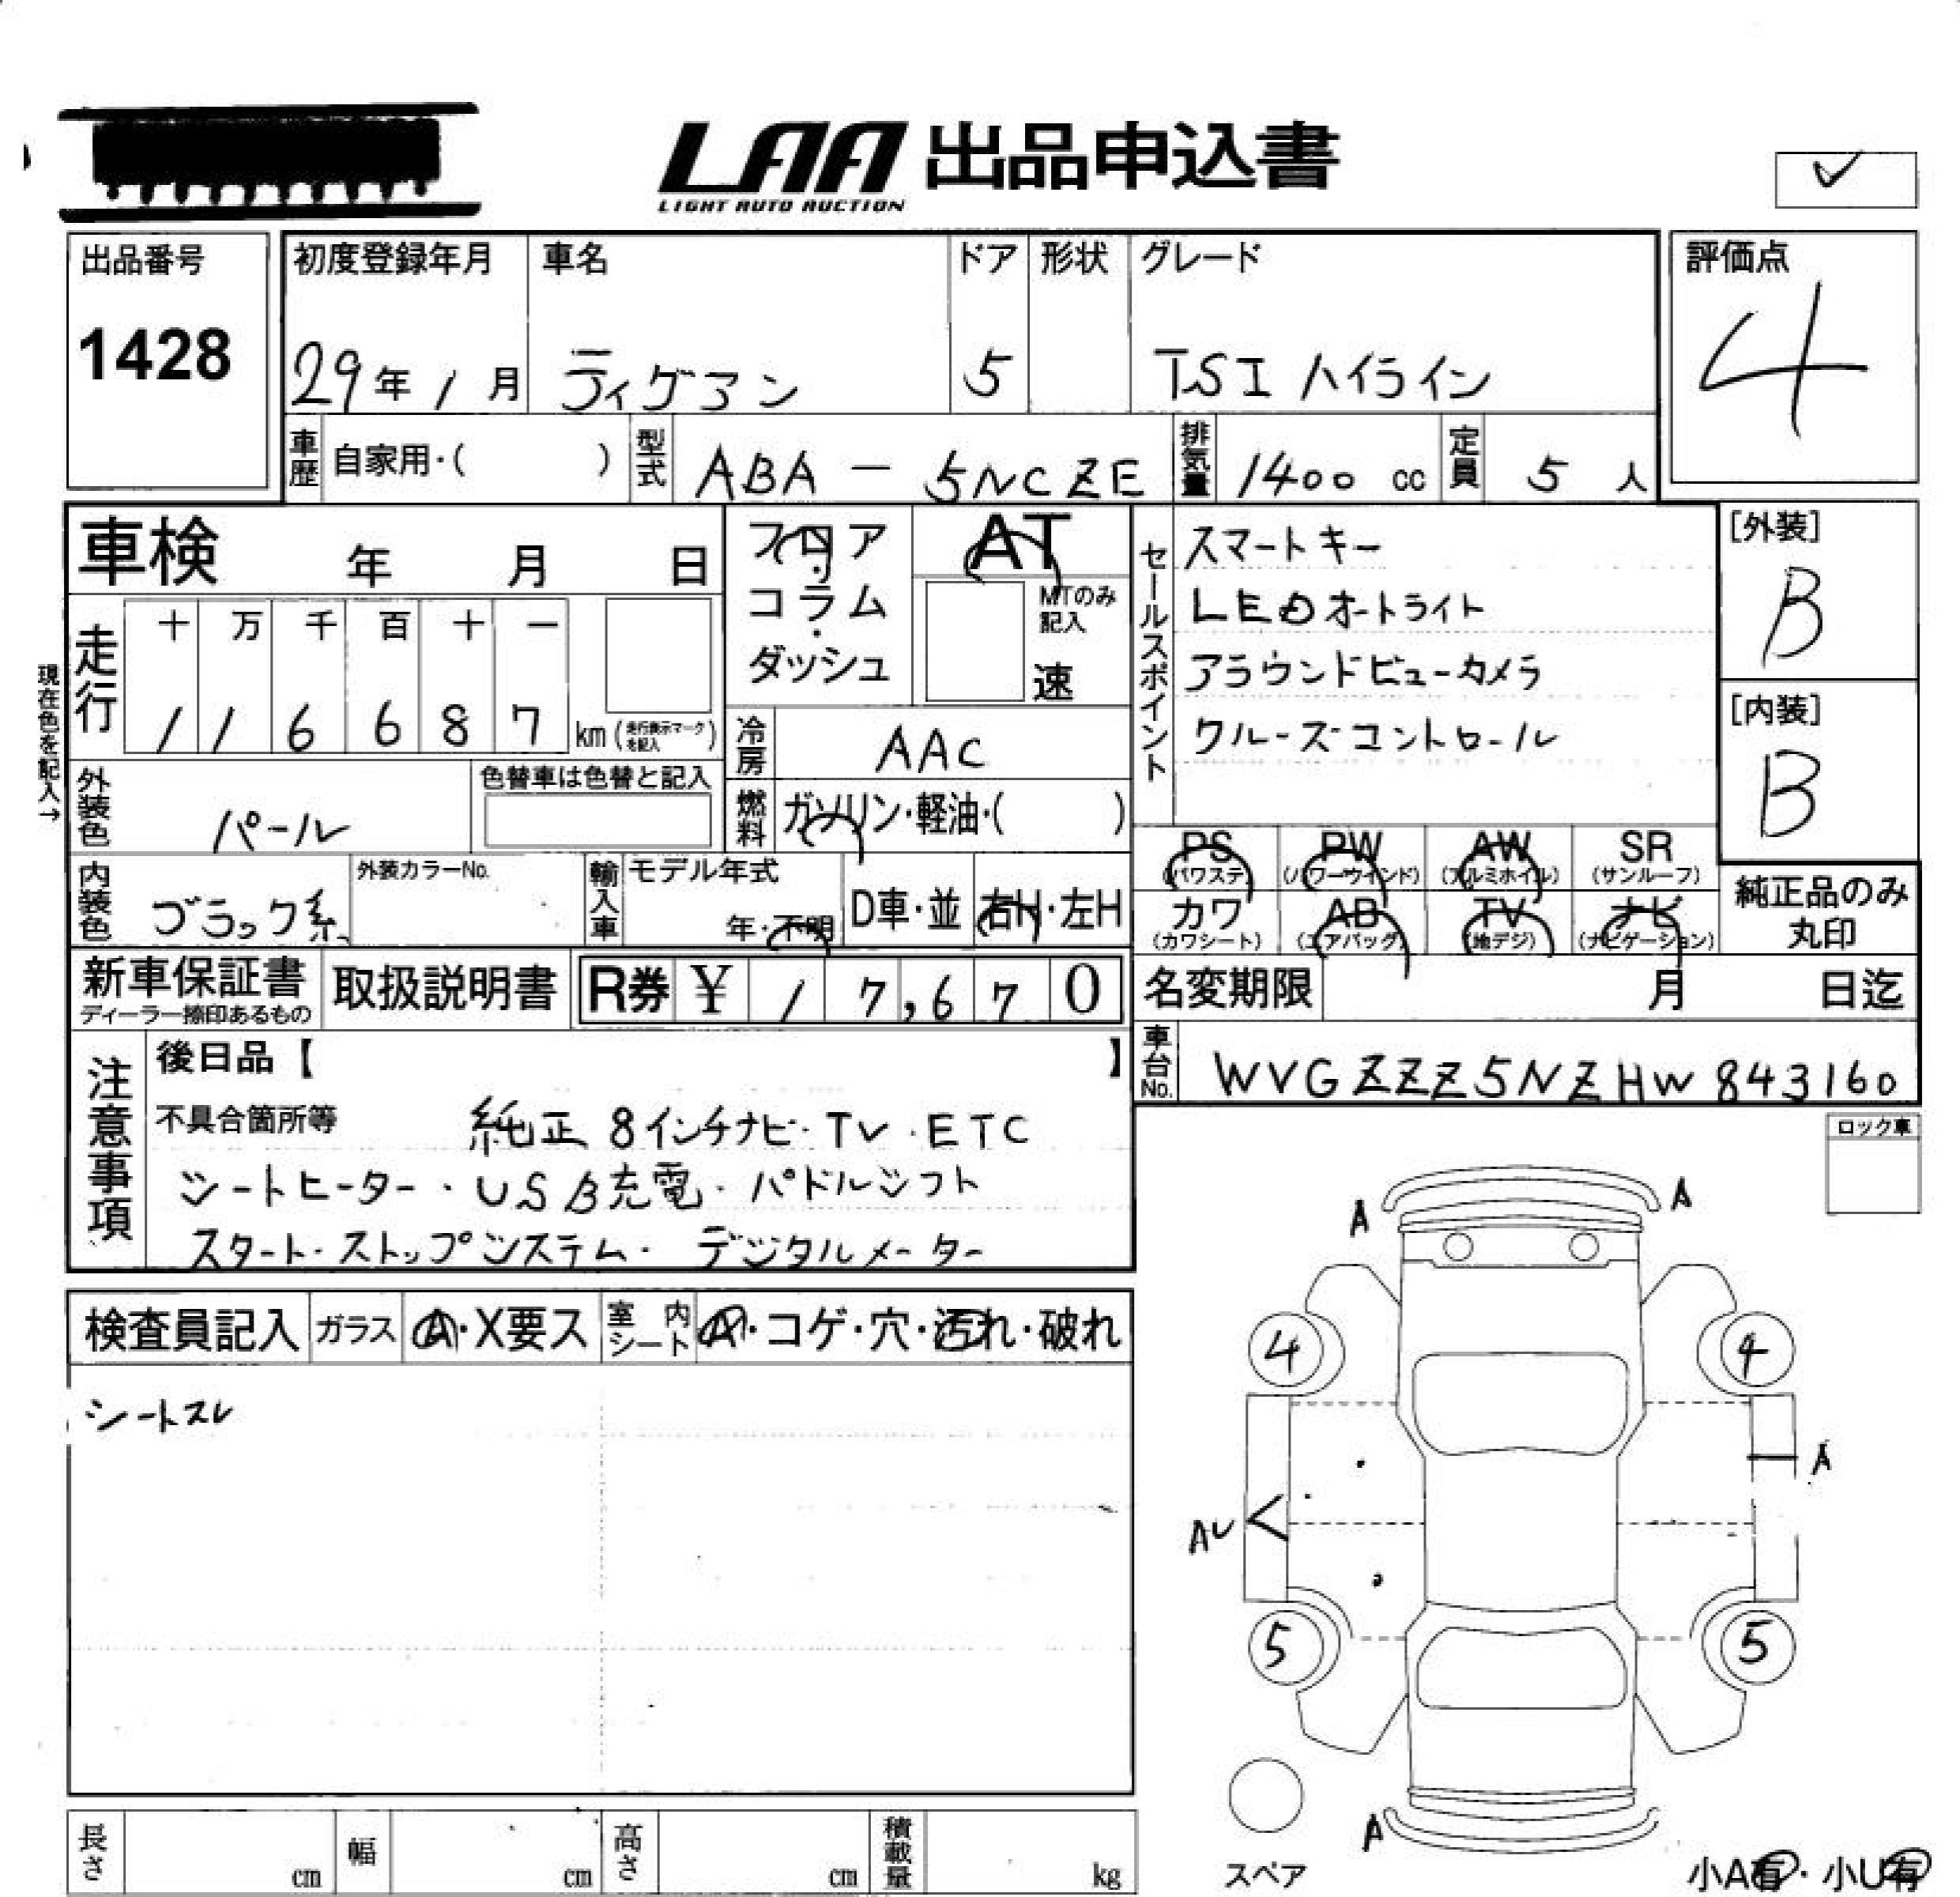 LAA 出品申込書
LIGHT AUTO AUCTION
出品番号
1428
初度登録年月
29年 1月
車名
ティグアン
ドア
5
形状
グレード
TSI ハイライン
評価点
4
車歴
自家用・(　　)
型式
ABA - 5NCZE
排気量
1400 cc
定員
5 人
車検　年　月　日
フロア・コラム・ダッシュ
AT
MTのみ記入
速
セールスポイント
スマートキー
LEDオートライト
アラウンドビューカメラ
クルーズコントロール
[外装]
B
[内装]
B
現在色を記入→
走行
十 万 千 百 十 一
1 1 6 6 8 7 km (走行表示マークを記入)
冷房
AAC
外装色
パール
色替車は色替と記入
燃料
ガソリン・軽油・(　　)
PS (パワステ)
PW (パワーウインド)
AW (アルミホイル)
SR (サンルーフ)
カワ (カワシート)
AB (エアバッグ)
TV (地デジ)
ナビ (ナビゲーション)
純正品のみ丸印
内装色
ブラック系
外装カラーNo.
輸入車
モデル年式
年・不明
D車・並
右H・左H
新車保証書
ディーラー捺印あるもの
取扱説明書
R券 ¥ 1 7,6 7 0
名変期限　月　日迄
車台No.
WVGZZZ5NZHW843160
注意事項
後日品【　　】
不具合箇所等
純正 8インチナビ・TV・ETC
シートヒーター・USB充電・パドルシフト
スタート・ストップシステム・デジタルメーター
ロック車
検査員記入
ガラス
A・X要ス
室内シート
A・コゲ・穴・汚れ・破れ
シートスレ
A
A
4
4
A
AU
5
5
A
スペア
小A有・小U有
長さ cm
幅 cm
高さ cm
積載量 kg